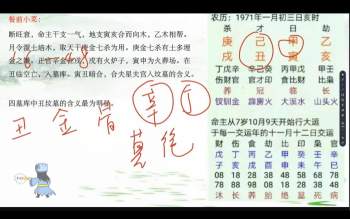 餐前小菜:
断旺衰，命主干支一气，地支寅亥合而向木，乙木相帮，
月令湿土培木，取天干庚金七杀为用，庚金七杀有土多埋
金之
在丑临空亡，入墓库。寅丑暗合，合夫星夫宫入坟墓的含义。
四墓库中丑坟墓的含义最为明显
18 48
辛 丁
丑 金 胃
墓 绝
农历：1971年一月初三日亥时
杀 才 日 劫
庚 己 甲 乙
戌 丑 寅 亥
丁戊辛 癸己辛 丙戊甲 甲壬
伤财官 印才官 食财比 比枭
养 冠 临 长
钗钏金 霹雳火 大溪水 山头火
命主从7岁10月9天开始行大运
于每一交运年的十一月十二日交运
财 伤 食 劫 比 印 枭 官
戊 丁 丙 乙 甲 癸 壬 辛
子 亥 戌 酉 申 未 午 巳
08 18 28 38 48 58 68 78
78 88 98 08 18 28 38 48
沐 长 养 胎 绝 墓 死 病